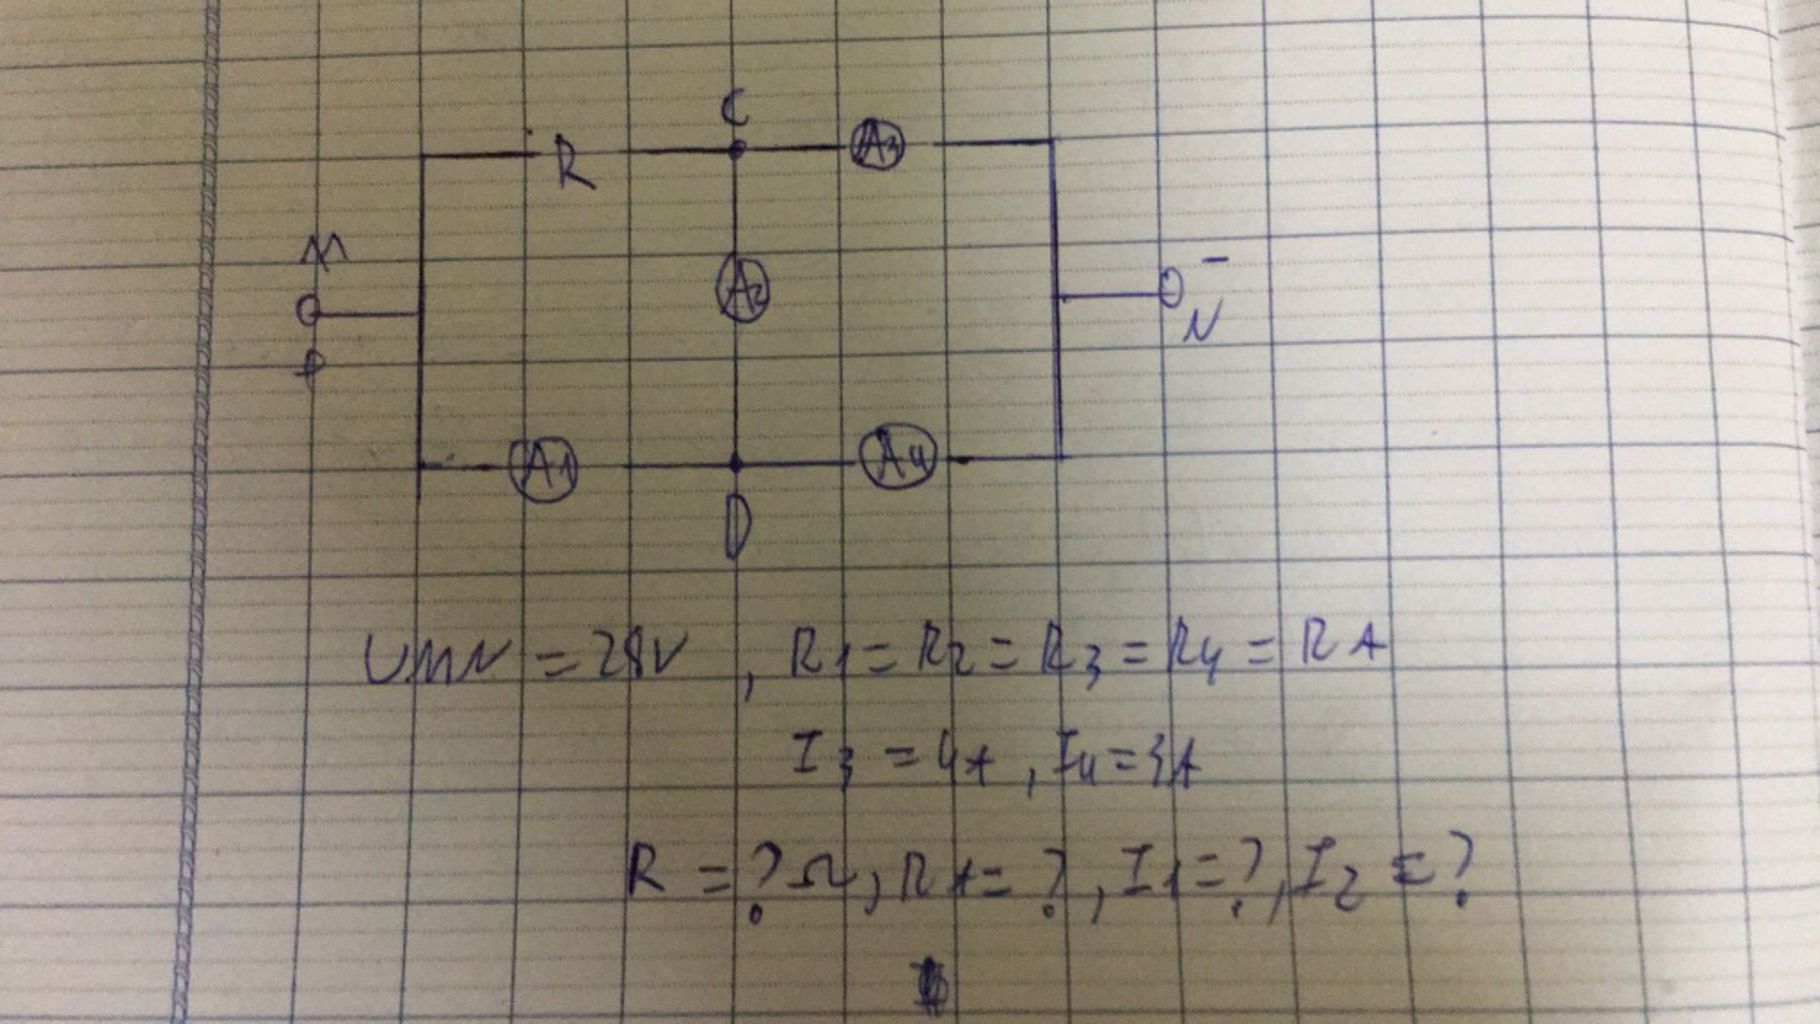 C
R
A3
M
A2
-
N
P
A1
A4
D
UMN = 28V , R1 = R2 = R3 = R4 = RA
I3 = 4A , I4 = 3A
R = ? Ω, RA = ? , I1 = ? , I2 = ?